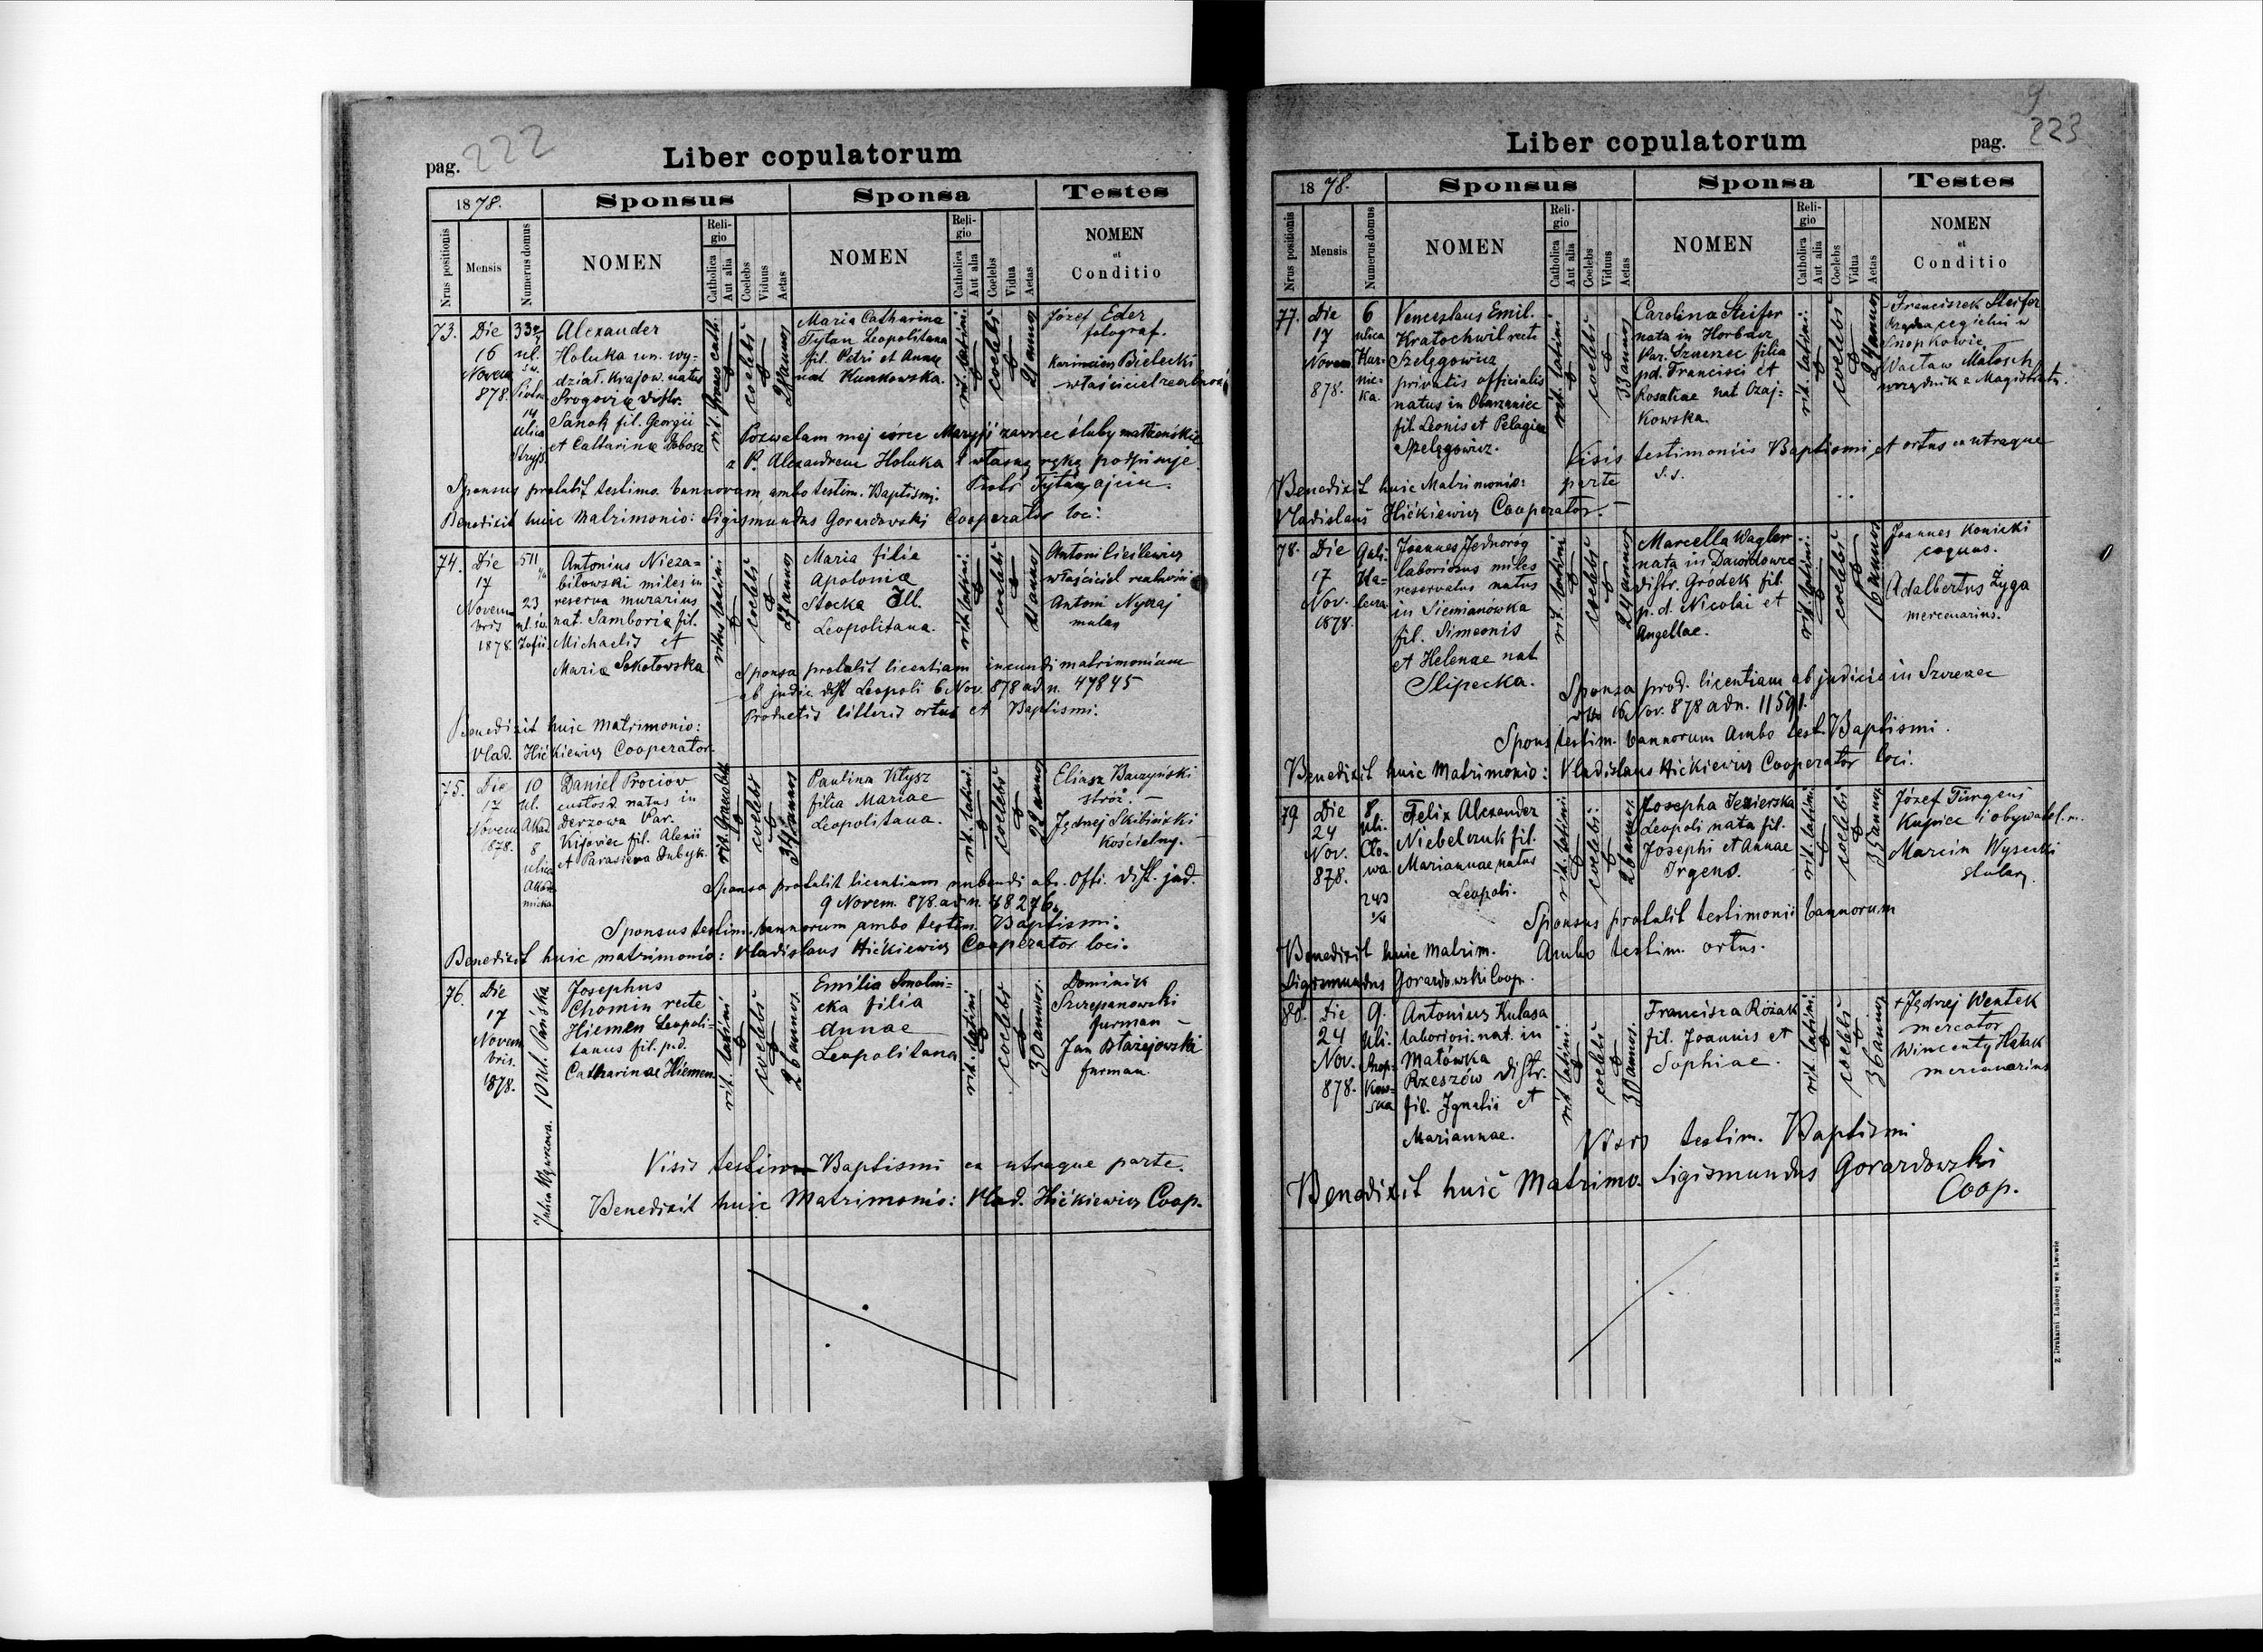 pag. 222
Liber copulatorum
1878.
Sponsus
Sponsa
Testes
Nrus positionis
Mensis
Numerus domus
NOMEN
Religio
Catholica
Aut alia
Coelebs
Viduus
Aetas
NOMEN
Religio
Catholica
Aut alia
Coelebs
Vidua
Aetas
NOMEN
et
Conditio
73.
Die
16
Novem
878.
ul.
św.
14
ulica
Stryjs.
Alexander
Holuka urz. wy-
dział. Krajow. natus
distr.
Sanok fil. Georgii
et Catharina Dobosz
rit. graeco cath.
coelebs
28 annos
Maria Catharina
Tytan Leopolitana
fil. Petri et Annae
nat Kunkowska.
rit. latini.
coelebs
21 annos
Józef Eder
fotograf.
Bielecki
właściciel realności
Pozwalam mej córce Maryji zawrzec śluby małżeńskie
z P. Alexandrem Holuka i własną ręką podpisuje
Sponsus protulit testimo. bannorum, ambo testim. Baptismi.
Piotr Tytan, ojciec.
Benedixit huic Matrimonio: Sigismundus Gorazdowski Cooperator loci.
74.
Die
17
Novem
bris
1878.
511
23
ul. św.
Zofii
Antonius Nieza-
bitowski miles in
reserva murarius
nat. Samboria fil.
Michaelis et
Maria Sokołowska
ritus latini
coelebs
27 annos
Maria filia
Apolonia
Stocka Ill.
Leopolitana.
rit. latini.
coelebs
21 annos
Antoni Cieślewicz
właściciel realności
Antoni Nyczaj
mularz
Sponsa protulit licentiam ineundi matrimonium
ab judic. dist Leopoli 6 Nov. 878 ad n. 47845
Productis litteris ortus et Baptismi.
Benedixit huic Matrimonio:
Vlad. Hićkiewicz Cooperator.
75.
Die
17
Novem
1878.
10
ul.
Akad
8
ulica
Akade
micka.
Daniel Prociow
custos natus in
Derzowa Par.
Kijowiec fil. Alexii
et Parasiewa Dubyk.
coelebs
34 annos
Paulina Kłysz
filia Mariae
Leopolitana.
rit. latini.
coelebs
22 annos
Eliasz Baczyński
stróż. —
Jędrzej Skibiński
Kościelny. —
Sponsa protulit licentiam nubendi abs. Offi. dist. jud.
9 Novem. 878. ad n. 48276.
Sponsus testim. bannorum ambo testim. Baptismi.
Benedixit huic matrimonio: Vladislaus Hićkiewicz Cooperator loci.
76.
Die
17
Novem
bris.
1878.
10 ul. Pańska
Josephus
Chomin recte
Hiemen Leopoli-
tanus fil. p.d.
Catharinae Hiemen.
rit. latini
coelebs
26 annos.
Emilia Smolni-
cka filia
Annae
Leopolitana
rit. latini
coelebs
30 annos.
Dominik
Szczepanowski
furman —
Jan Błażejowski
furman.
Visis testim Baptismi ex utraque parte.
Benedixit huic Matrimonio: Vlad. Hićkiewicz Coop.
Liber copulatorum
pag.
9
223
1878.
Sponsus
Sponsa
Testes
Nrus positionis
Mensis
Numerus domus
NOMEN
Religio
Catholica
Aut alia
Coelebs
Viduus
Aetas
NOMEN
Religio
Catholica
Aut alia
Coelebs
Vidua
Aetas
NOMEN
et
Conditio
77.
Die
17
Novem
878.
6
ulica
Kur-
nic-
ka.
Venceslaus Emil.
Kratochwil recte
Szelęgowicz
privatis officialis
natus in Obarzaniec
fil. Leonis et Pelagia
Szelęgowicz.
rit. latini
coelebs
33 annos
Carolina Steifer
nata in Horbacz
Par. Szczerzec filia
pd. Francisci et
Rosaliae nat Czaj-
kowska.
rit. latini.
coelebs
24 annos
Franciszek Steifer
Rządca cegielni w
Snopkowie —
Wacław Matosch
urzędnik z Magistratu.
Visis testimoniis Baptismi et ortus ex utraque
parte s.s.
Benedixit huic Matrimonio:
Vladislaus Hićkiewicz Cooperator.
78.
Die
17
Nov.
1878.
Joannes Jednoróg
laboriosus miles
reservatus natus
in Siemianówka
fil. Simeonis
et Helenae nat
Slipecka.
rit. latini
coelebs
24 annos
Marcella Wagler
nata in Dawidowce
distr. Gródek fil.
p.d. Nicolai et
Angellae.
rit. latini
coelebs
16 annos
Joannes Konicki
coquus.
Adalbertus Żyga
mercenarius.
Sponsa prod. licentiam ab judicio in Szczerzec
dtto 16 Nov. 878 adn. 11591.
Spons testim. bannorum Ambo test. Baptismi.
Benedixit huic Matrimonio: Vladislaus Hićkiewicz Cooperator loci.
79
Die
24
Nov.
878.
8
uli.
Cło-
wa
243
1/4
Felix Alexander
Niebelczuk fil.
Mariannae natus
Leopoli.
rit. latini.
coelebs
26 annos.
Josepha Jezierska
Leopoli nata fil.
Josephi et Annae
Irgens.
rit. latini.
coelebs
35 annos
Józef Türgens
Kupiec i obywatel. m.
Marcin Wysocki
stolarz.
Sponsus protulit testimonii bannorum
Ambo testim. ortus.
Benedixit huic Matrim.
Sigismundus Gorazdowski Coop.
80.
Die
24
Nov.
878.
9.
uli.
Snop-
kow-
ska
Antonius Kulasa
laboriosi. nat. in
Matówka
Rzeszów distr.
fil. Ignatii et
Mariannae.
rit latini.
coelebs
30 annos.
Francisca Róžak
fil. Joannis et
Sophiae.
rit. latini.
coelebs
36 annos
+ Jędrzej Wentek
mercator
Wincenty Hałak
mercenarius
Visis testim. Baptismi
Benedixit huic Matrimo. Sigismundus Gorazdowski
Coop.
Z Drukarni Ludowej we Lwowie